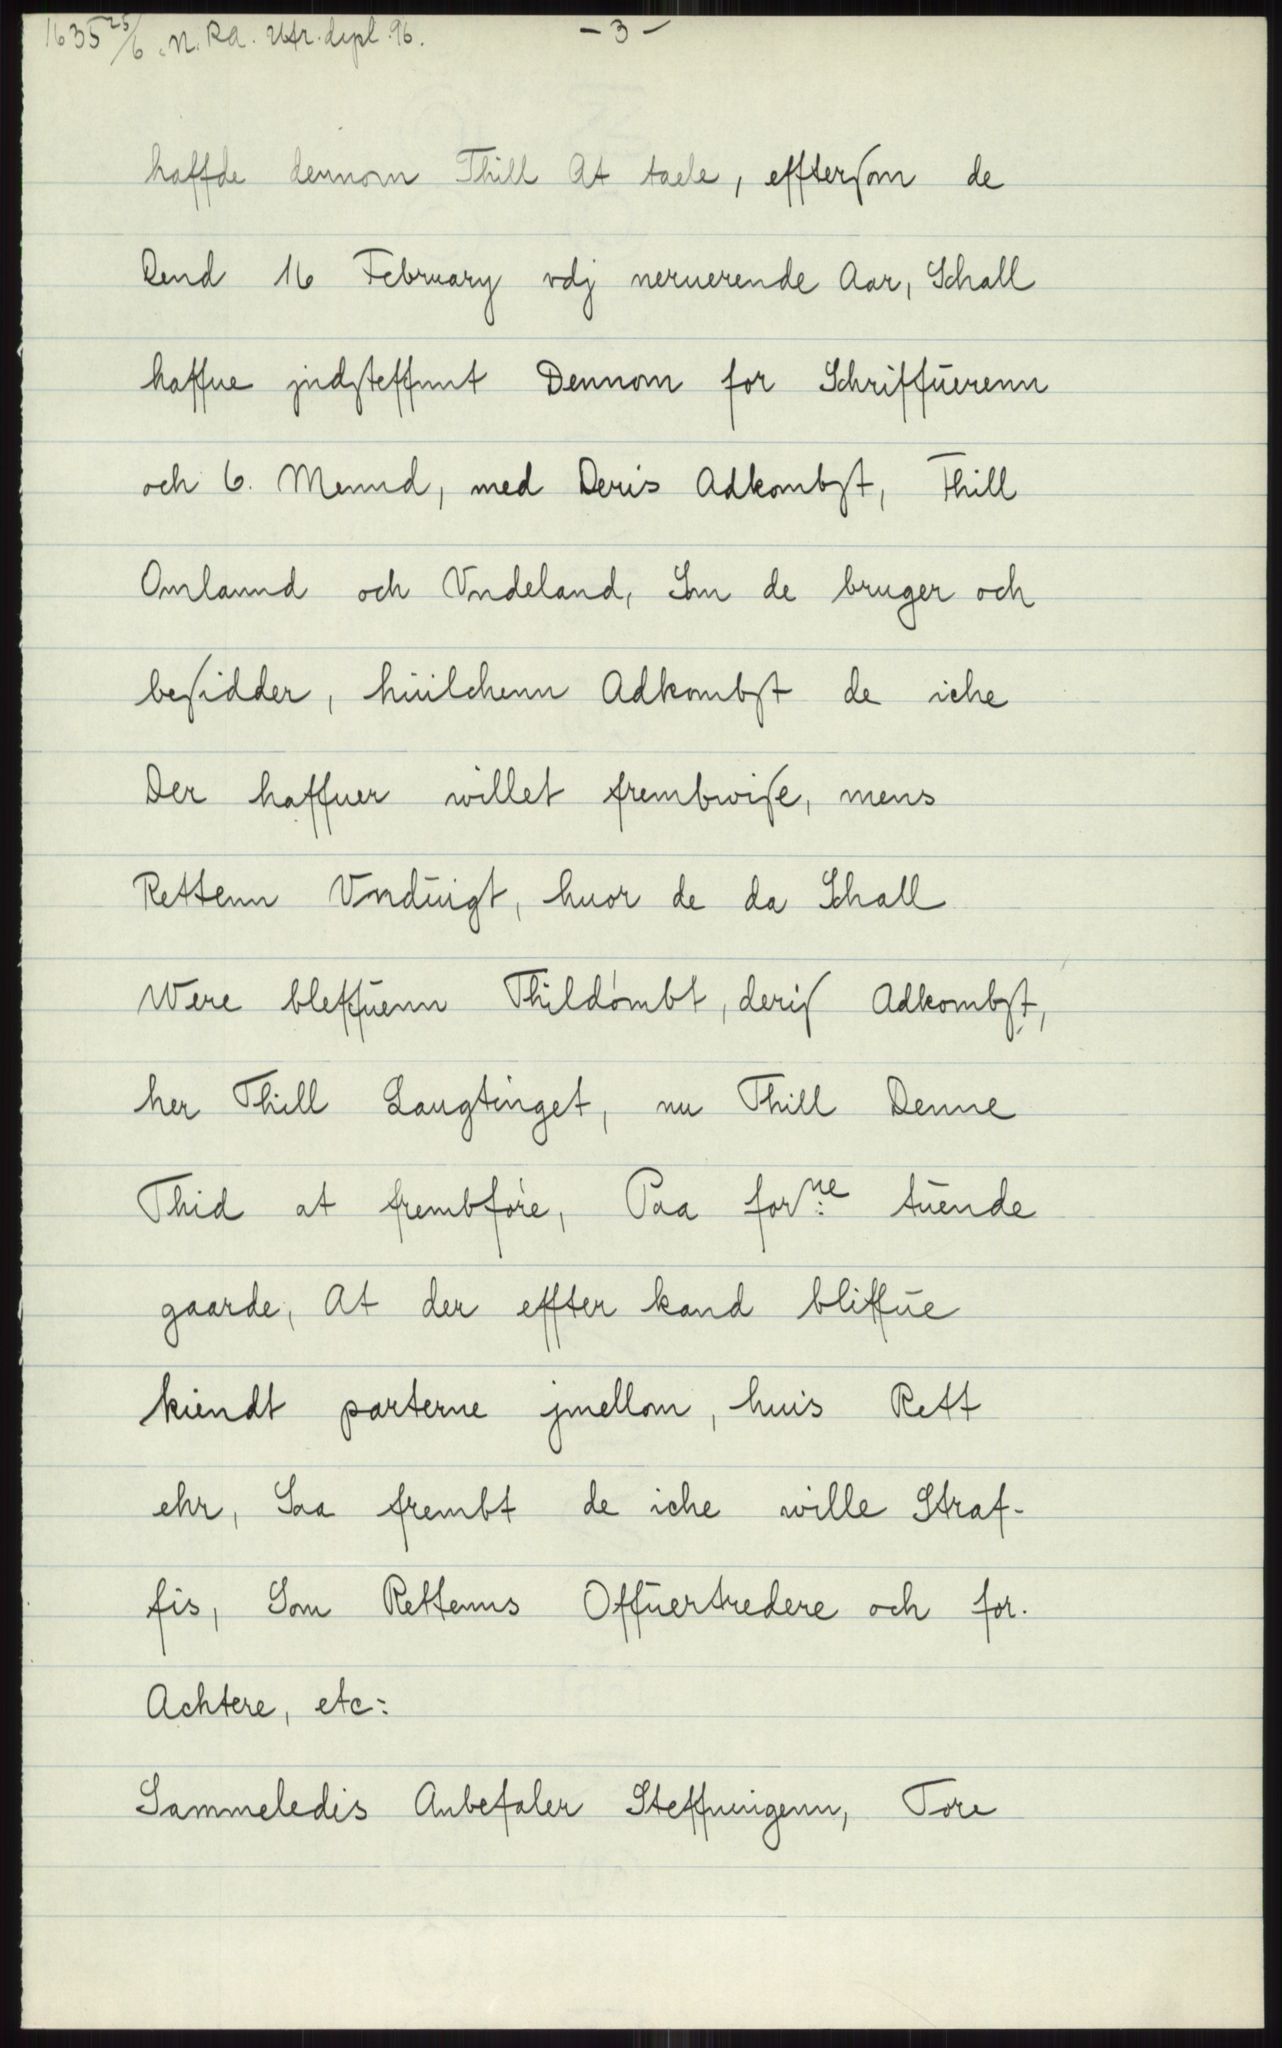 1635 25/6. N. RA. Utr. dipl. 96. - 3 -
haffde dennom Thill At taele, effterſom de
Dend 16 February vdj neruerende Aar, Schall
haffue jndſteffnnt Dennom for Schriffŭerenn
och 6. Mennd, med Deris Adkombſt, Thill
Omlannd och Vndeland, Som de bruger och
beſidder, hŭilchenn Adkombſt de iche
Der haffuer willet frembwiſe, mens
Rettenn Vndŭigt, huor de da Schall
Were bleffŭenn Thildómbt, deriſ Adkombſt,
her Thill Laugtinget, nu Thill Denne
Thid at frembfóre, Paa forne: tŭende
gaarde, At der effter kand bliffŭe
kiendt parterne jmellom, huis Rett
ehr, Saa frembt de iche wille Straf-
fis, Som Rettenns Offŭertredere och for-
Achtere, etc:
Sammeledis Anbefaler Steffningenn, Tore